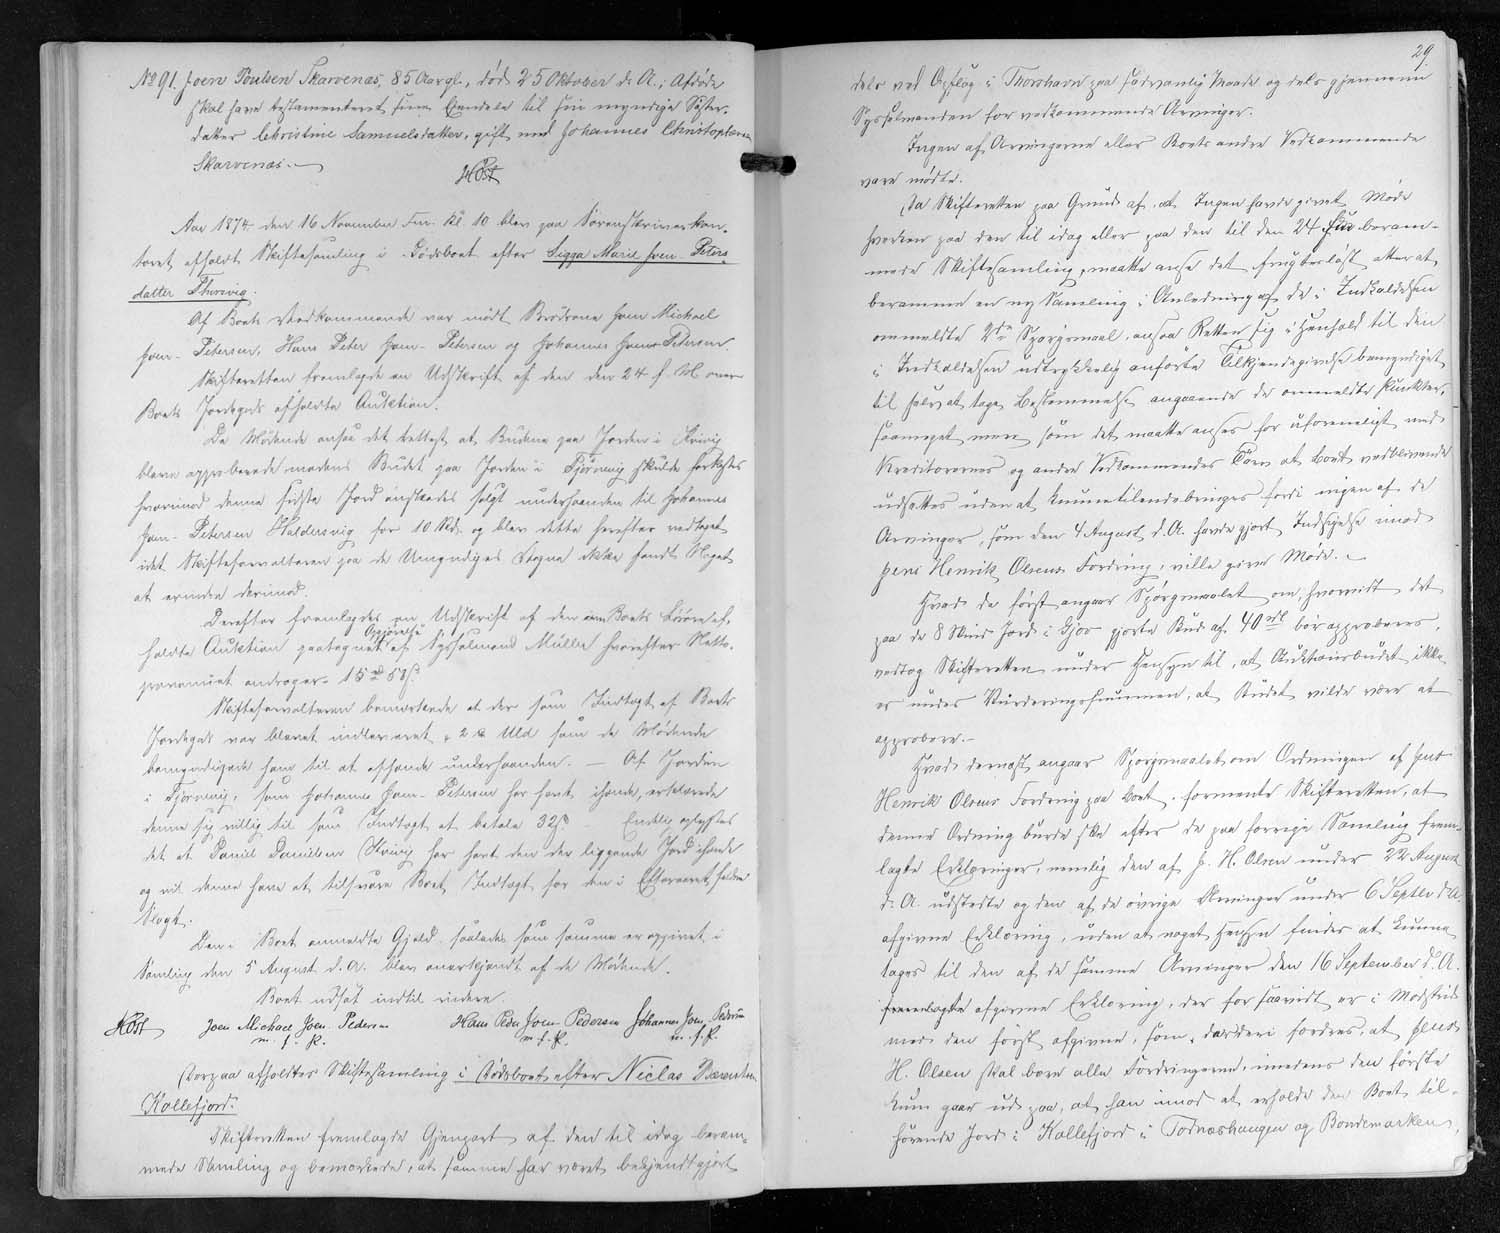 No 91. Joen Poulsen Skarvenæs, 85 Aar gl., død 25 Oktober d. A.; Afdøde
skal have testamenteret sine Eiendele til sin myndige Søster-
datter Christine Samuelsdatter, gift med Johannes Christophersen
Skarvenæs.
HØst
Aar 1874 den 16 November Fm. Kl. 10 blev paa Sorenskriverkon-
toret afholdt Skiftesamling i Dødsboet efter Sigga Marie Joen-Peters-
datter Thorsvig.
Af Boets Vedkommende var mødt Brødrene Joen Michael
Joen-Petersen, Hans Peter Joen-Petersen og Johannes Joen-Petersen.
Skifteretten fremlagde en Udskrift af den den 24 f. M. over
Boets Jordegods afholdte Auktion.
De Mødende ansaa det rettest at Budene paa Jorden i Hvivig
bleve approberede medens Budet paa Jorden i Tjørnevig skulde forkastes
hvorimod denne sidste Jord ønskedes solgt underhaanden til Johannes
Joen-Petersen Haldersvig for 10 Rd. og blev dette herefter vedtaget
idet Skifteforvalteren paa de Umyndiges Vegne ikke fandt Noget
at erindre derimod.
Derefter fremlagdes en Udskrift af den over Boets Løsøre af-
holdte Auktion paategnet Opgjørelse af Sysselmand Müller hvorefter Netto-
provenuet andrager 15 rd 58 s.
Skifteforvalteren bemærkede at der som Indtægt af Boets
Jordegods var blevet indleveret 2 Uld som de Mødende
bemyndigede ham til at afhænde underhaanden. — Af Jorden
i Tjørnevig, som Johannes Joen-Petersen har havt ihænde, erklærede
denne sig villig til som Indtægt at betale 32 s. — Endelig oplystes
det at Daniel Danielsen Hvivig har havt den der liggende Jord ihænde
og vil denne have at tilsvare Boet Indtægt for den i Efteraaret faldne
Slagt.
Den i Boet anmeldte Gjæld saaledes som samme er opgivet i
Samling den 5 August d. A. blev anerkjendt af de Mødende.
Boet udsat indtil videre.
HØst Joen Michael Joen-Petersen Hans Peder Joen Pedersen Johannes Joen Pedersen
m. f. P. m. f. P. m. f. P.
Derpaa afholdtes Skiftesamling i Dødsboet efter Niclas Berentsen
Kollefjord.
Skifteretten fremlagde Gjenpart af den til idag beram-
mede Samling og bemærkede, at samme har været bekjendtgjort
29.
dels ved Opslag i Thorshavn paa sædvanlig Maade og dels gjennem
Sysselmanden for vedkommende Arvinger.
Ingen af Arvingerne eller Boets andre Vedkommende
vare mødte.
Da Skifteretten paa Grund af, at Ingen havde givet Møde
hverken paa den til idag eller paa den til den 24 beram-
mede Skiftesamling, maatte anse det frugtesløst atter at
beramme en ny Samling i Anledning af de i Indkaldelsen
ommeldte 2de Spørgsmaal, ansaa Retten sig i Henhold til den
i Indkaldelsen udtrykkelig anførte Tilkjendegivelse bemyndiget
til selv at tage Bestemmelse angaaende de ommeldte Punkter,
saameget mere som det maatte anses for uforeneligt med
Kreditorernes og andre Vedkommendes Tarv at Boet vedblivende
udsættes uden at kunne tilendebringes fordi ingen af de
Arvinger, som den 4 August d. A. havde gjort Indsigelse imod
Jens Henrik Olsens Fordring, ville give Møde. —
Hvad da først angaar Spørgsmaalet om, hvorvidt det
paa de 8 Skind Jord i Gjov gjorte Bud af 40 rd bør approberes,
vedtog Skifteretten under Hensyn til, at Auktionsbudet ikke
er under Vurderingssummen, at Budet vilde være at
approbere. —
Hvad dernæst angaar Spørgsmaalet om Ordningen af Jens
Henrik Olsens Fordring paa Boet, formente Skifteretten, at
denne Ordning burde ske efter de paa forrige Samling frem-
lagte Erklæringer, nemlig den af J. H. Olsen under 22 August
d. A. udstedte og den af de øvrige Arvinger under 6 Septbr d. A.
afgivne Erklæring, uden at noget Hensyn findes at kunne
tages til den af de samme Arvinger den 16 September d. A.
fremlagte afgivne Erklæring, der for saavidt er i Modstrid
med den først afgivne, som deri fordres, at Jens
H. Olsen skal bære alle Fordringerne, imedens den første
kun gaar ud paa, at han imod at erholde den Boet til-
hørende Jord i Kollefjord i Todnæshaugen og Bondemarken,